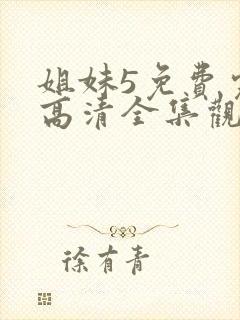 姐妹5免費
高清全集觀
徐有青